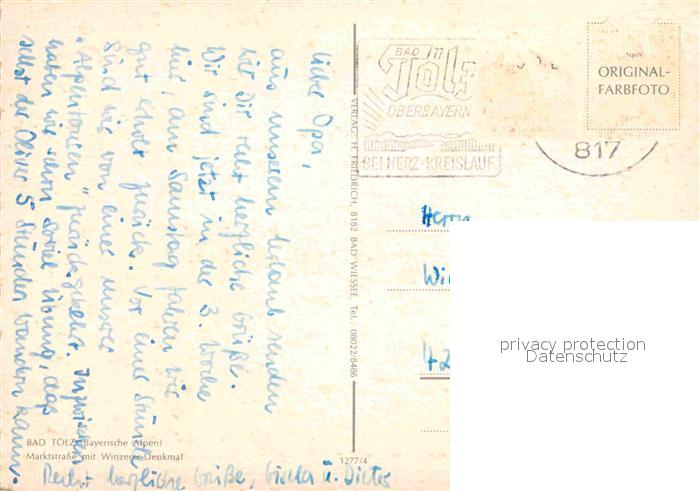 Lieber Opa,
aus unserem Urlaub senden
wir Dir recht herzliche Grüße.
Wir sind jetzt in der 3. Woche
hier, am Samstag fahren wir
gut erholt zurück. Vor einer Stunde
sind wir von einer unserer
"Alpentouren" zurückgekehrt. Inzwischen
haben wir schon soviel Übung, daß
selbst der Oliver 5 Stunden wandern kann.
Recht herzliche Grüße, Gisela u. Dieter
BAD TÖLZ (Bayerische Alpen)
Marktstraße mit Winzerer-Denkmal
1277/4
VERLAG H. FRIEDRICH, 8182 BAD WIESSEE, Tel. 08022/8486
BAD
Tölz
OBERBAYERN
BEI HERZ-KREISLAUF
817
Nach
ORIGINAL-
FARBFOTO
Herrn
Wi
42
privacy protection
Datenschutz